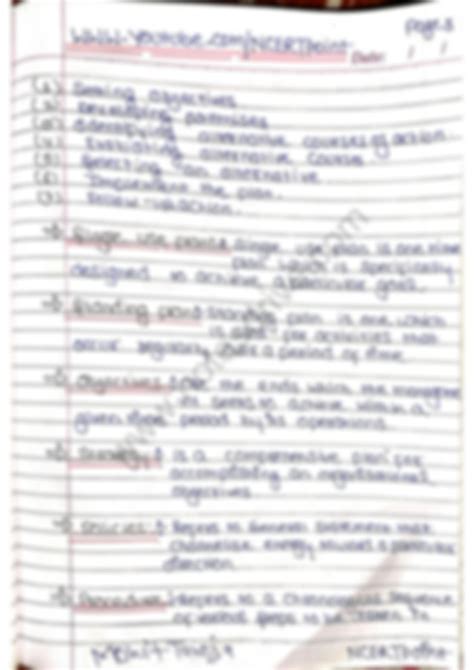 www.youtube.com/NCERTpoint
Page
Date: / /
(1) Setting objectives
(2) Developing premises
(3) Identifying alternative courses of action.
(4) Evaluating alternative courses
(5) Selecting an alternative.
(6) Implement the plan.
(7) Follow-up action.
Single use plans: single use plan is one time
plan which is specifically
designed to achieve a particular goal.
Standing plan: Standing plan is one which
is used for activities that
occur regularly over a period of time.
Objectives: are the ends which the
seeks to achieve within a
given time period by its operations.
Strategy: is a comprehensive plan for
accomplishing an organisational
objectives
Policies: Refers to General statement that
channelise energy towards a particular
direction.
Procedure: Refers to a chronological sequence
of steps to be taken
NCERTpoint